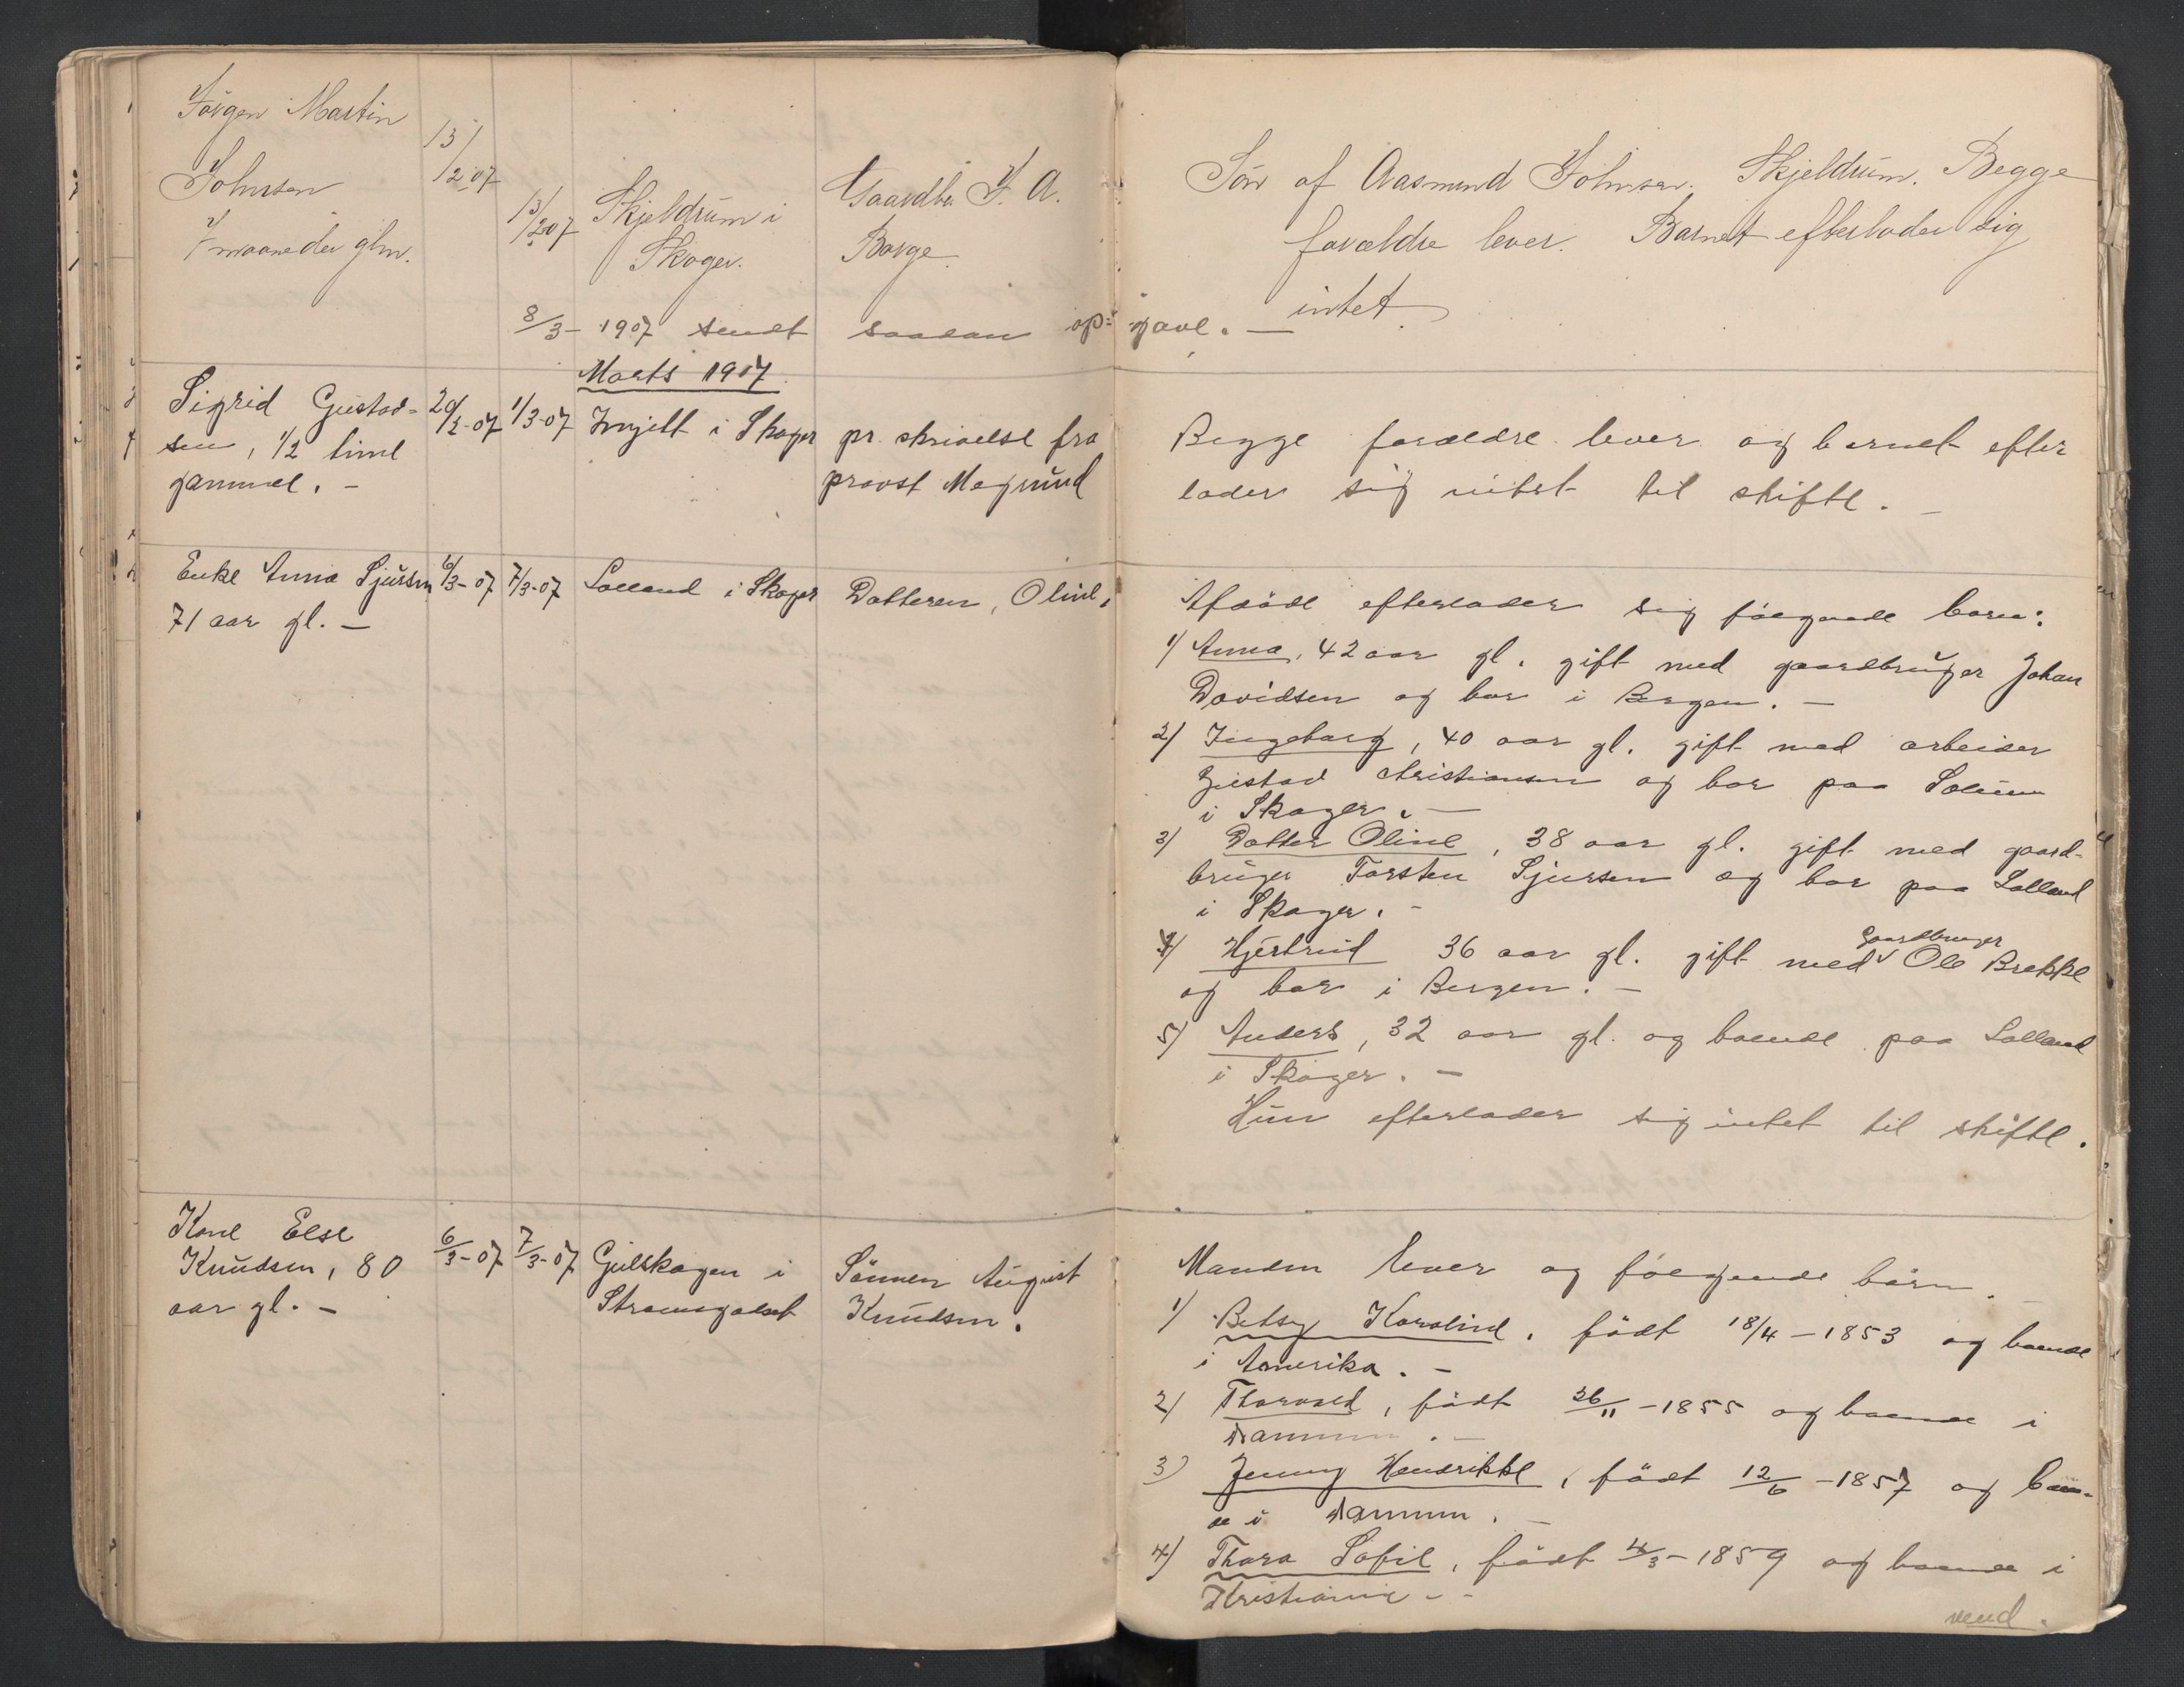 Jörgen Martin
Johnsen
7 maaneder glm.
13/2 07
13/2 07
Skjeldrum i
Skoger.
Gaardbr J. A.
Borge.
Sön af Aasmund Johnsen. Skjeldrum. Begge
forældre lever. Barnet efterlader sig
intet.
8/3 - 1907 sendt saadan op=
gave. —
Marts 1907.
Sigrid Gustav=
sen, 1/2 time
gammel. -
1/3-07
i Skoger
pr. skrivelse fra
provst Magnund
Begge forældre lever og barnet efter
lader sig intet til skifte. -
Enke Anna Sjursen
71 aar gl. -
6/3-07
7/3-07
Lolland i Skoger
Datteren, Oline.
Afdöde efterlader sig fölgende born:
1) Anna, 42 aar gl. gift med gaardbruger Johan
Davidsen og bor i Bergen. -
2) Ingeborg, 40 aar gl. gift med arbeider
Gustav Christiansen og bor paa Solum
i Skoger. -
3) Datter Oline, 38 aar gl. gift med gaard-
bruger Torsten Sjursen og bor paa Lolland
i Skoger. -
4) Hjertrud 36 aar gl. gift med gaardbruger Ole Brekke
og bor i Bergen. -
5) Anders, 32 aar gl. og boende paa Lolland
i Skoger. -
Hun efterlader sig intet til skifte.
Kone Else
Knudsen, 80
aar gl. -
6/3-07
7/3-07
Gulskogen i
Strömsgodset
Sönnen August
Knudsen.
Manden lever og fölgende börn. -
1) Betsy Karoline. födt 18/4 - 1853 og boende
i Amerika. -
2) Thorvald, födt 26/11 - 1855 og boende i
Drammen. -
3) Jenny Hendrikke, födt 12/6 - 1857 og boen-
de i Drammen. -
4) Thora Sofie, födt 4/3 - 1859 og boende i
Kristiania - -
vend.